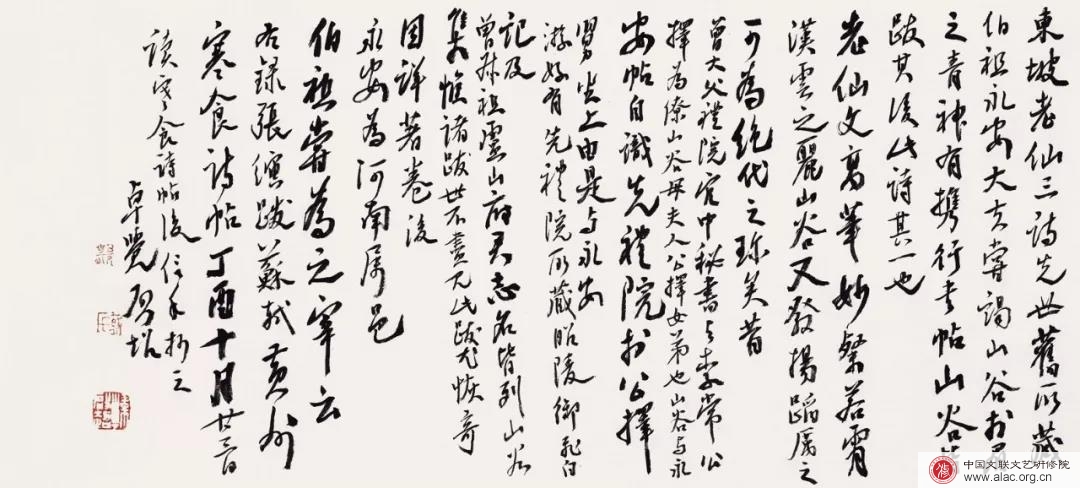 東坡老仙三詩先世舊所藏
伯祖永安大夫嘗謁山谷於眉
之青神有携行書帖山谷皆
跋其後此詩其一也
老仙文高筆妙粲若霄
漢雲之麗山谷又發揚蹈厲之
可為絕代之珍矣昔
曾大父禮院官中秘書与李常公
擇為僚山谷母夫人公擇女弟也山谷与永
安帖自識先禮院於公擇
舅坐上由是与永安
游好有先禮院所藏昭陵御飛白
記及
曾叔祖盧山府君志名皆列山谷
集惟諸跋世不盡見此跋尤恢奇
因詳著卷後
永安為河南属邑
伯祖嘗為之宰云
右錄張縯跋蘇軾黃州
寒食詩帖丁酉十月廿
讀寒食詩帖後信手抄之
中国文联文艺研修院
www.alac.org.cn